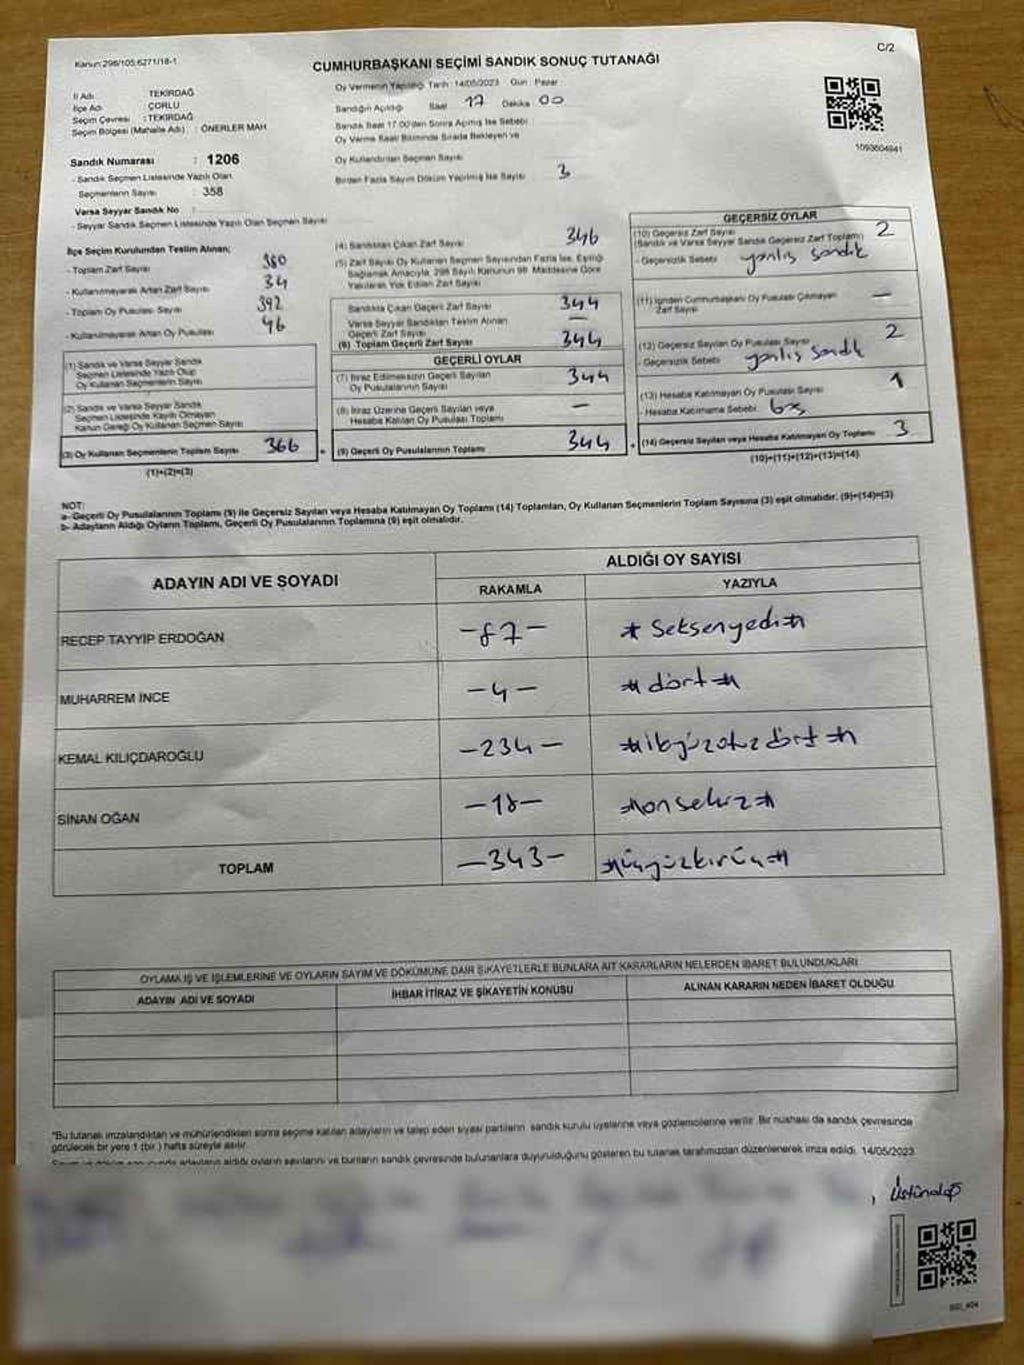 Kanun: 298/105;6271/18-1
C/2
CUMHURBAŞKANI SEÇİMİ SANDIK SONUÇ TUTANAĞI
İl Adı TEKİRDAĞ
İlçe Adı ÇORLU
Seçim Çevresi : TEKİRDAĞ
Seçim Bölgesi (Mahalle Adı) : ÖNERLER MAH.
Oy Vermenin Yapıldığı Tarih : 14/05/2023 Gün : Pazar
Sandığın Açıldığı Saat 17 Dakika 00
Sandık Saat 17.00'den Sonra Açılmış İse Sebebi
Oy Verme Saati Bitiminde Sırada Bekleyen ve
Oy Kullandırılan Seçmen Sayısı
Birden Fazla Sayım Döküm Yapılmış İse Sayısı 3
1093604941
Sandık Numarası : 1206
- Sandık Seçmen Listesinde Yazılı Olan
Seçmenlerin Sayısı : 358
Varsa Seyyar Sandık No
- Seyyar Sandık Seçmen Listesinde Yazılı Olan Seçmen Sayısı
İlçe Seçim Kurulundan Teslim Alınan;
- Toplam Zarf Sayısı 380
- Kullanılmayarak Artan Zarf Sayısı 34
- Toplam Oy Pusulası Sayısı 392
- Kullanılmayarak Artan Oy Pusulası 46
(1) Sandık ve Varsa Seyyar Sandık
Seçmen Listesinde Yazılı Olup
Oy Kullanan Seçmenlerin Sayısı
(2) Sandık ve Varsa Seyyar Sandık
Seçmen Listesinde Kayıtlı Olmayan
Kanun Gereği Oy Kullanan Seçmen Sayısı
(3) Oy Kullanan Seçmenlerin Toplam Sayısı 366
(1)+(2)=(3)
(4) Sandıktan Çıkan Zarf Sayısı 346
(5) Zarf Sayısı Oy Kullanan Seçmen Sayısından Fazla İse, Eşitliği
Sağlamak Amacıyla, 298 Sayılı Kanunun 98. Maddesine Göre
Yakılarak Yok Edilen Zarf Sayısı
Sandıkta Çıkan Geçerli Zarf Sayısı 344
Varsa Seyyar Sandıktan Teslim Alınan
Geçerli Zarf Sayısı —
(6) Toplam Geçerli Zarf Sayısı 344
GEÇERLİ OYLAR
(7) İtiraz Edilmeksizin Geçerli Sayılan
Oy Pusulalarının Sayısı 344
(8) İtiraz Üzerine Geçerli Sayılan veya
Hesaba Katılan Oy Pusulası Toplamı —
(9) Geçerli Oy Pusulalarının Toplamı 344
GEÇERSİZ OYLAR
(10) Geçersiz Zarf Sayısı 2
(Sandık ve Varsa Seyyar Sandık Geçersiz Zarf Toplamı)
- Geçersizlik Sebebi yanlış sandık
(11) İçinden Cumhurbaşkanı Oy Pusulası Çıkmayan
Zarf Sayısı —
(12) Geçersiz Sayılan Oy Pusulası Sayısı 2
- Geçersizlik Sebebi yanlış sandık
(13) Hesaba Katılmayan Oy Pusulası Sayısı 1
- Hesaba Katılmama Sebebi boş
(14) Geçersiz Sayılan veya Hesaba Katılmayan Oy Toplamı 3
(10)+(11)+(12)+(13)=(14)
NOT:
a- Geçerli Oy Pusulalarının Toplamı (9) ile Geçersiz Sayılan veya Hesaba Katılmayan Oy Toplamı (14) Toplamları, Oy Kullanan Seçmenlerin Toplam Sayısına (3) eşit olmalıdır. (9)+(14)=(3)
b- Adayların Aldığı Oyların Toplamı, Geçerli Oy Pusulalarının Toplamına (9) eşit olmalıdır.
ADAYIN ADI VE SOYADI
ALDIĞI OY SAYISI
RAKAMLA YAZIYLA
RECEP TAYYİP ERDOĞAN -87- * Seksenyedi *
MUHARREM İNCE -4- * dört *
KEMAL KILIÇDAROĞLU -234- * ikiyüzotuzdört *
SİNAN OĞAN -18- * onsekiz *
TOPLAM -343- * üçyüzkırküç *
OYLAMA İŞ VE İŞLEMLERİNE VE OYLARIN SAYIM VE DÖKÜMÜNE DAİR ŞİKAYETLERLE BUNLARA AİT KARARLARIN NELERDEN İBARET BULUNDUKLARI
ADAYIN ADI VE SOYADI İHBAR İTİRAZ VE ŞİKAYETİN KONUSU ALINAN KARARIN NEDEN İBARET OLDUĞU
*Bu tutanak imzalandıktan ve mühürlendikten sonra seçime katılan adayların ve talep eden siyasi partilerin sandık kurulu üyelerine veya gözlemcilerine verilir. Bir nüshası da sandık çevresinde
görülecek bir yere 1 (bir) hafta süreyle asılır.
Sayım ve döküm sonucunda adayların aldığı oyların sayılarını ve bunların sandık çevresinde bulunanlara duyurulduğunu gösteren bu tutanak tarafımızdan düzenlenerek imza edildi. 14/05/2023